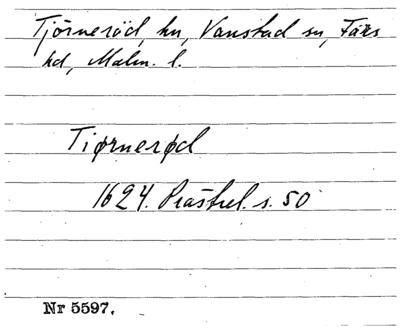 Tjörneröd, hn, Vanstad sn, Färs
hd, Malm. l.
Tiørnerød
1624. Prästrel. s. 50
Nr 5597.